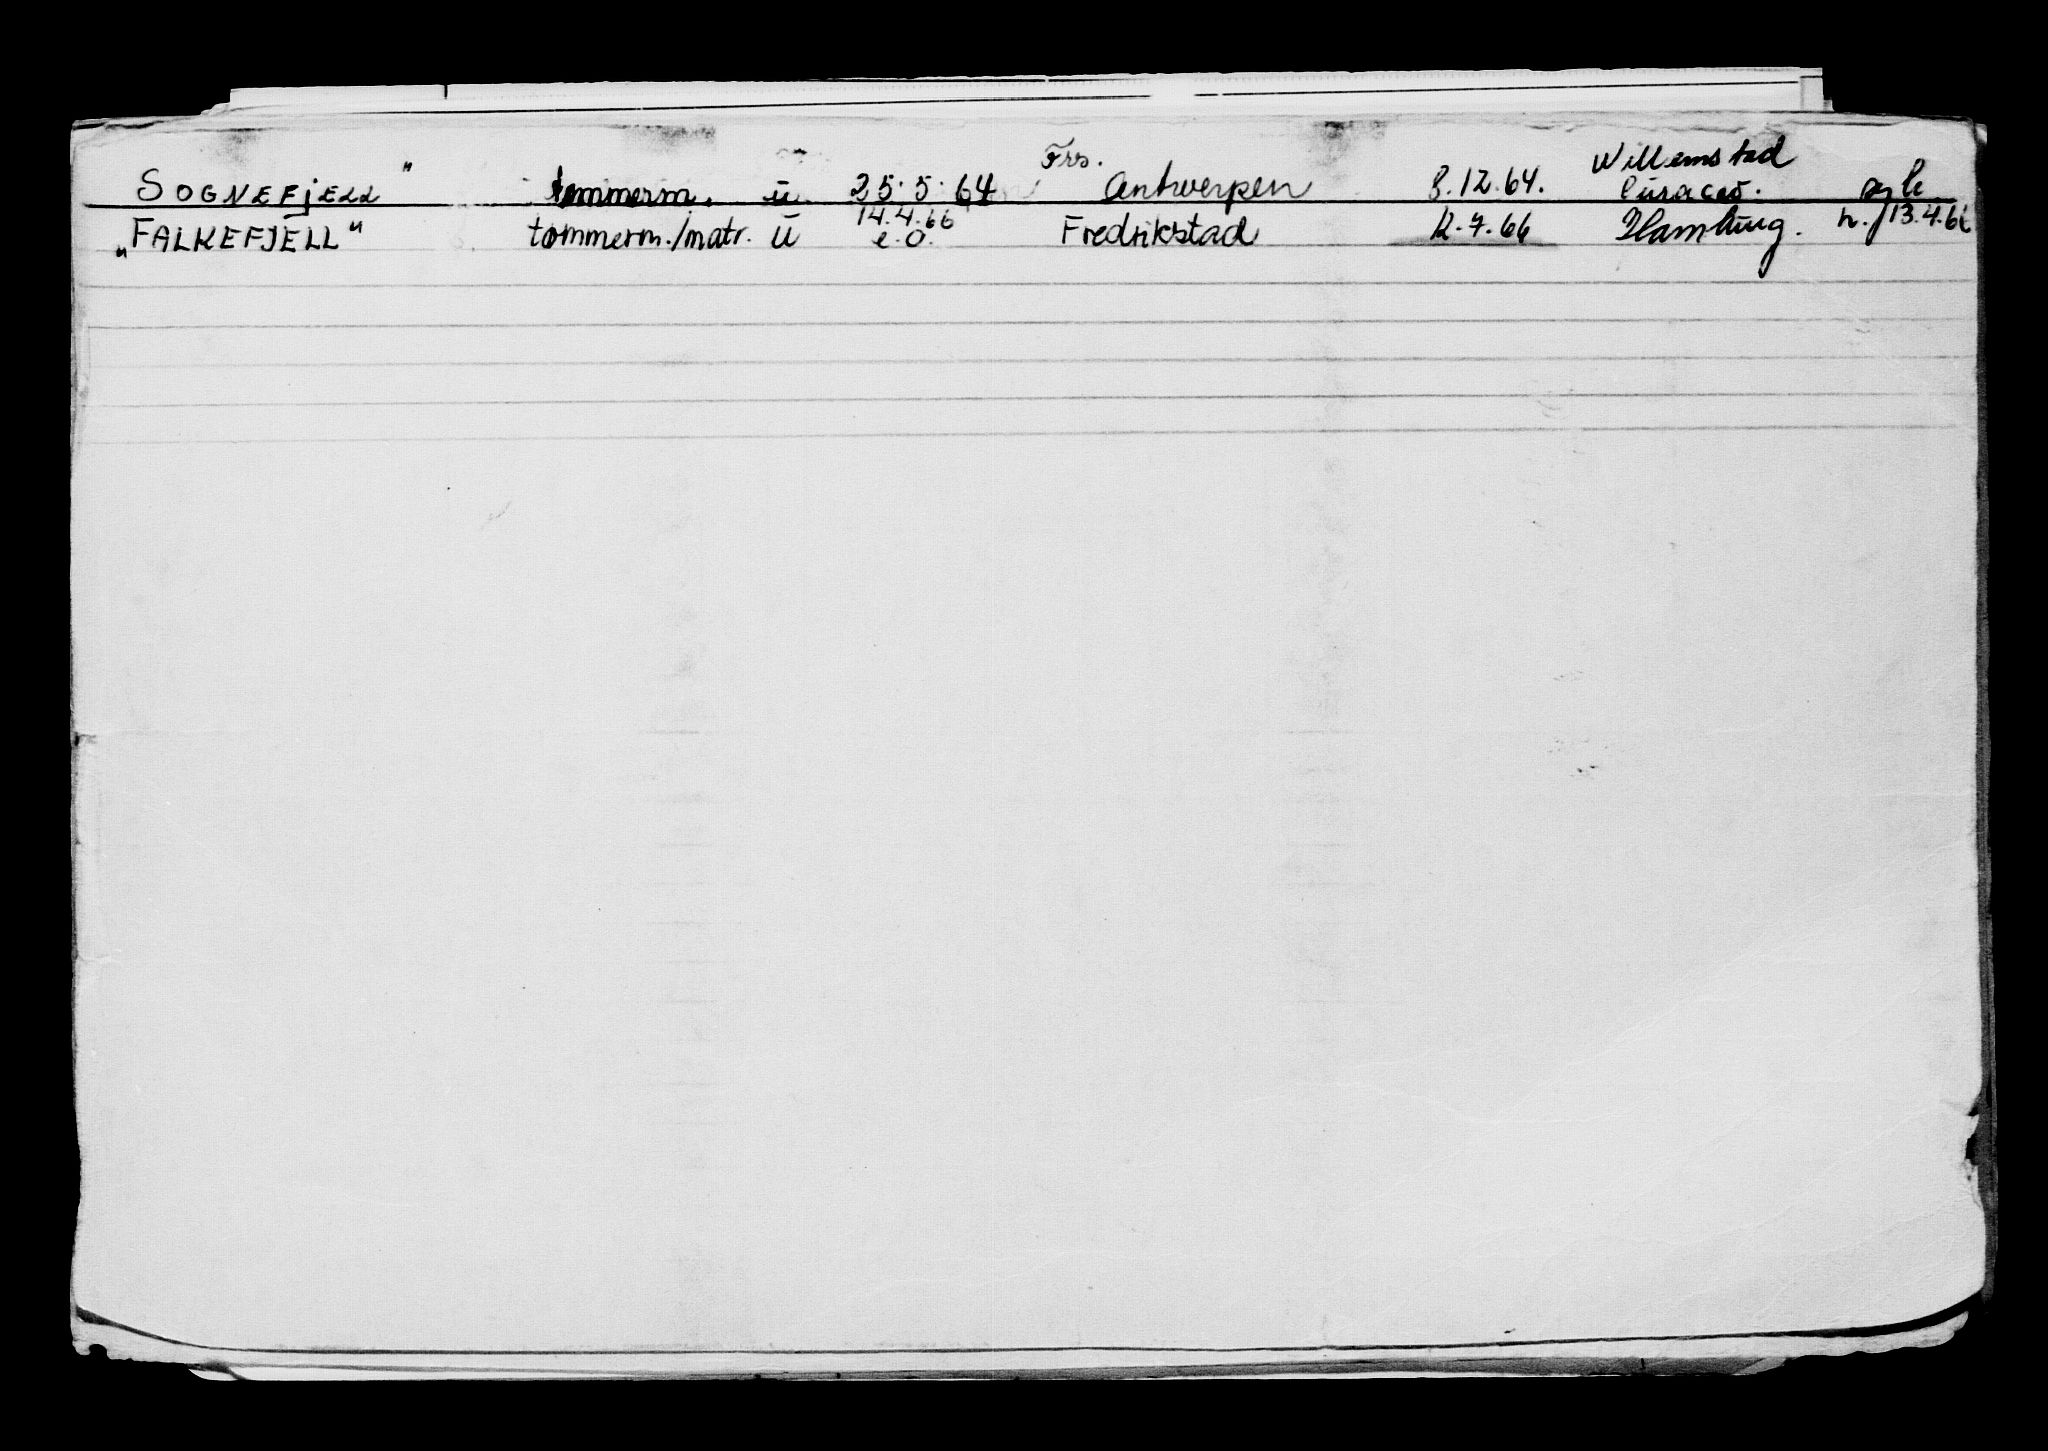 SOGNEFJELL" tømmerm. u 25.5.64 Frs. Antwerpen 8.12.64. Willemstad Curacao. syk
"FALKEFJELL" tømmerm./matr. u 14.4.66 e.o. Fredrikstad 12.7.66 Hamburg. 13.4.66